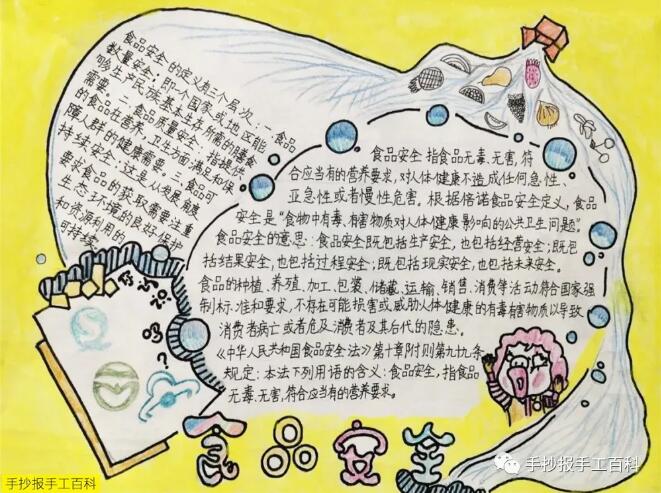 食品安全的定义有三个层次：一、食品
数量安全：即一个国家或地区能
够生产民族基本生存所需的膳食
需要。二、食品质量安全：指提供
的食品在营养、卫生方面满足和保
障人群的健康需要。三、食品可
持续安全：这是从发展角度
要求食品的获取需要注重
生态环境的良好保护
和资源利用的
可持续。
食品安全指食品无毒、无害,符
合应当有的营养要求,对人体健康不造成任何急性、
亚急性或者慢性危害。根据倍诺食品安全定义,食品
安全是“食物中有毒、有害物质对人体健康影响的公共卫生问题”。
食品安全的意思：食品安全既包括生产安全,也包括经营安全；既包
括结果安全,也包括过程安全；既包括现实安全,也包括未来安全。
食品的种植、养殖、加工、包装、储藏、运输、销售、消费等活动符合国家强
制标准和要求,不存在可能损害或威胁人体健康的有毒有害物质以导致
消费者病亡或者危及消费者及其后代的隐患。
《中华人民共和国食品安全法》第十章附则第九十九条
规定：本法下列用语的含义：食品安全,指食品
无毒、无害,符合应当有的营养要求。
你认识
吗？
食品安全
手抄报手工百科
手抄报手工百科